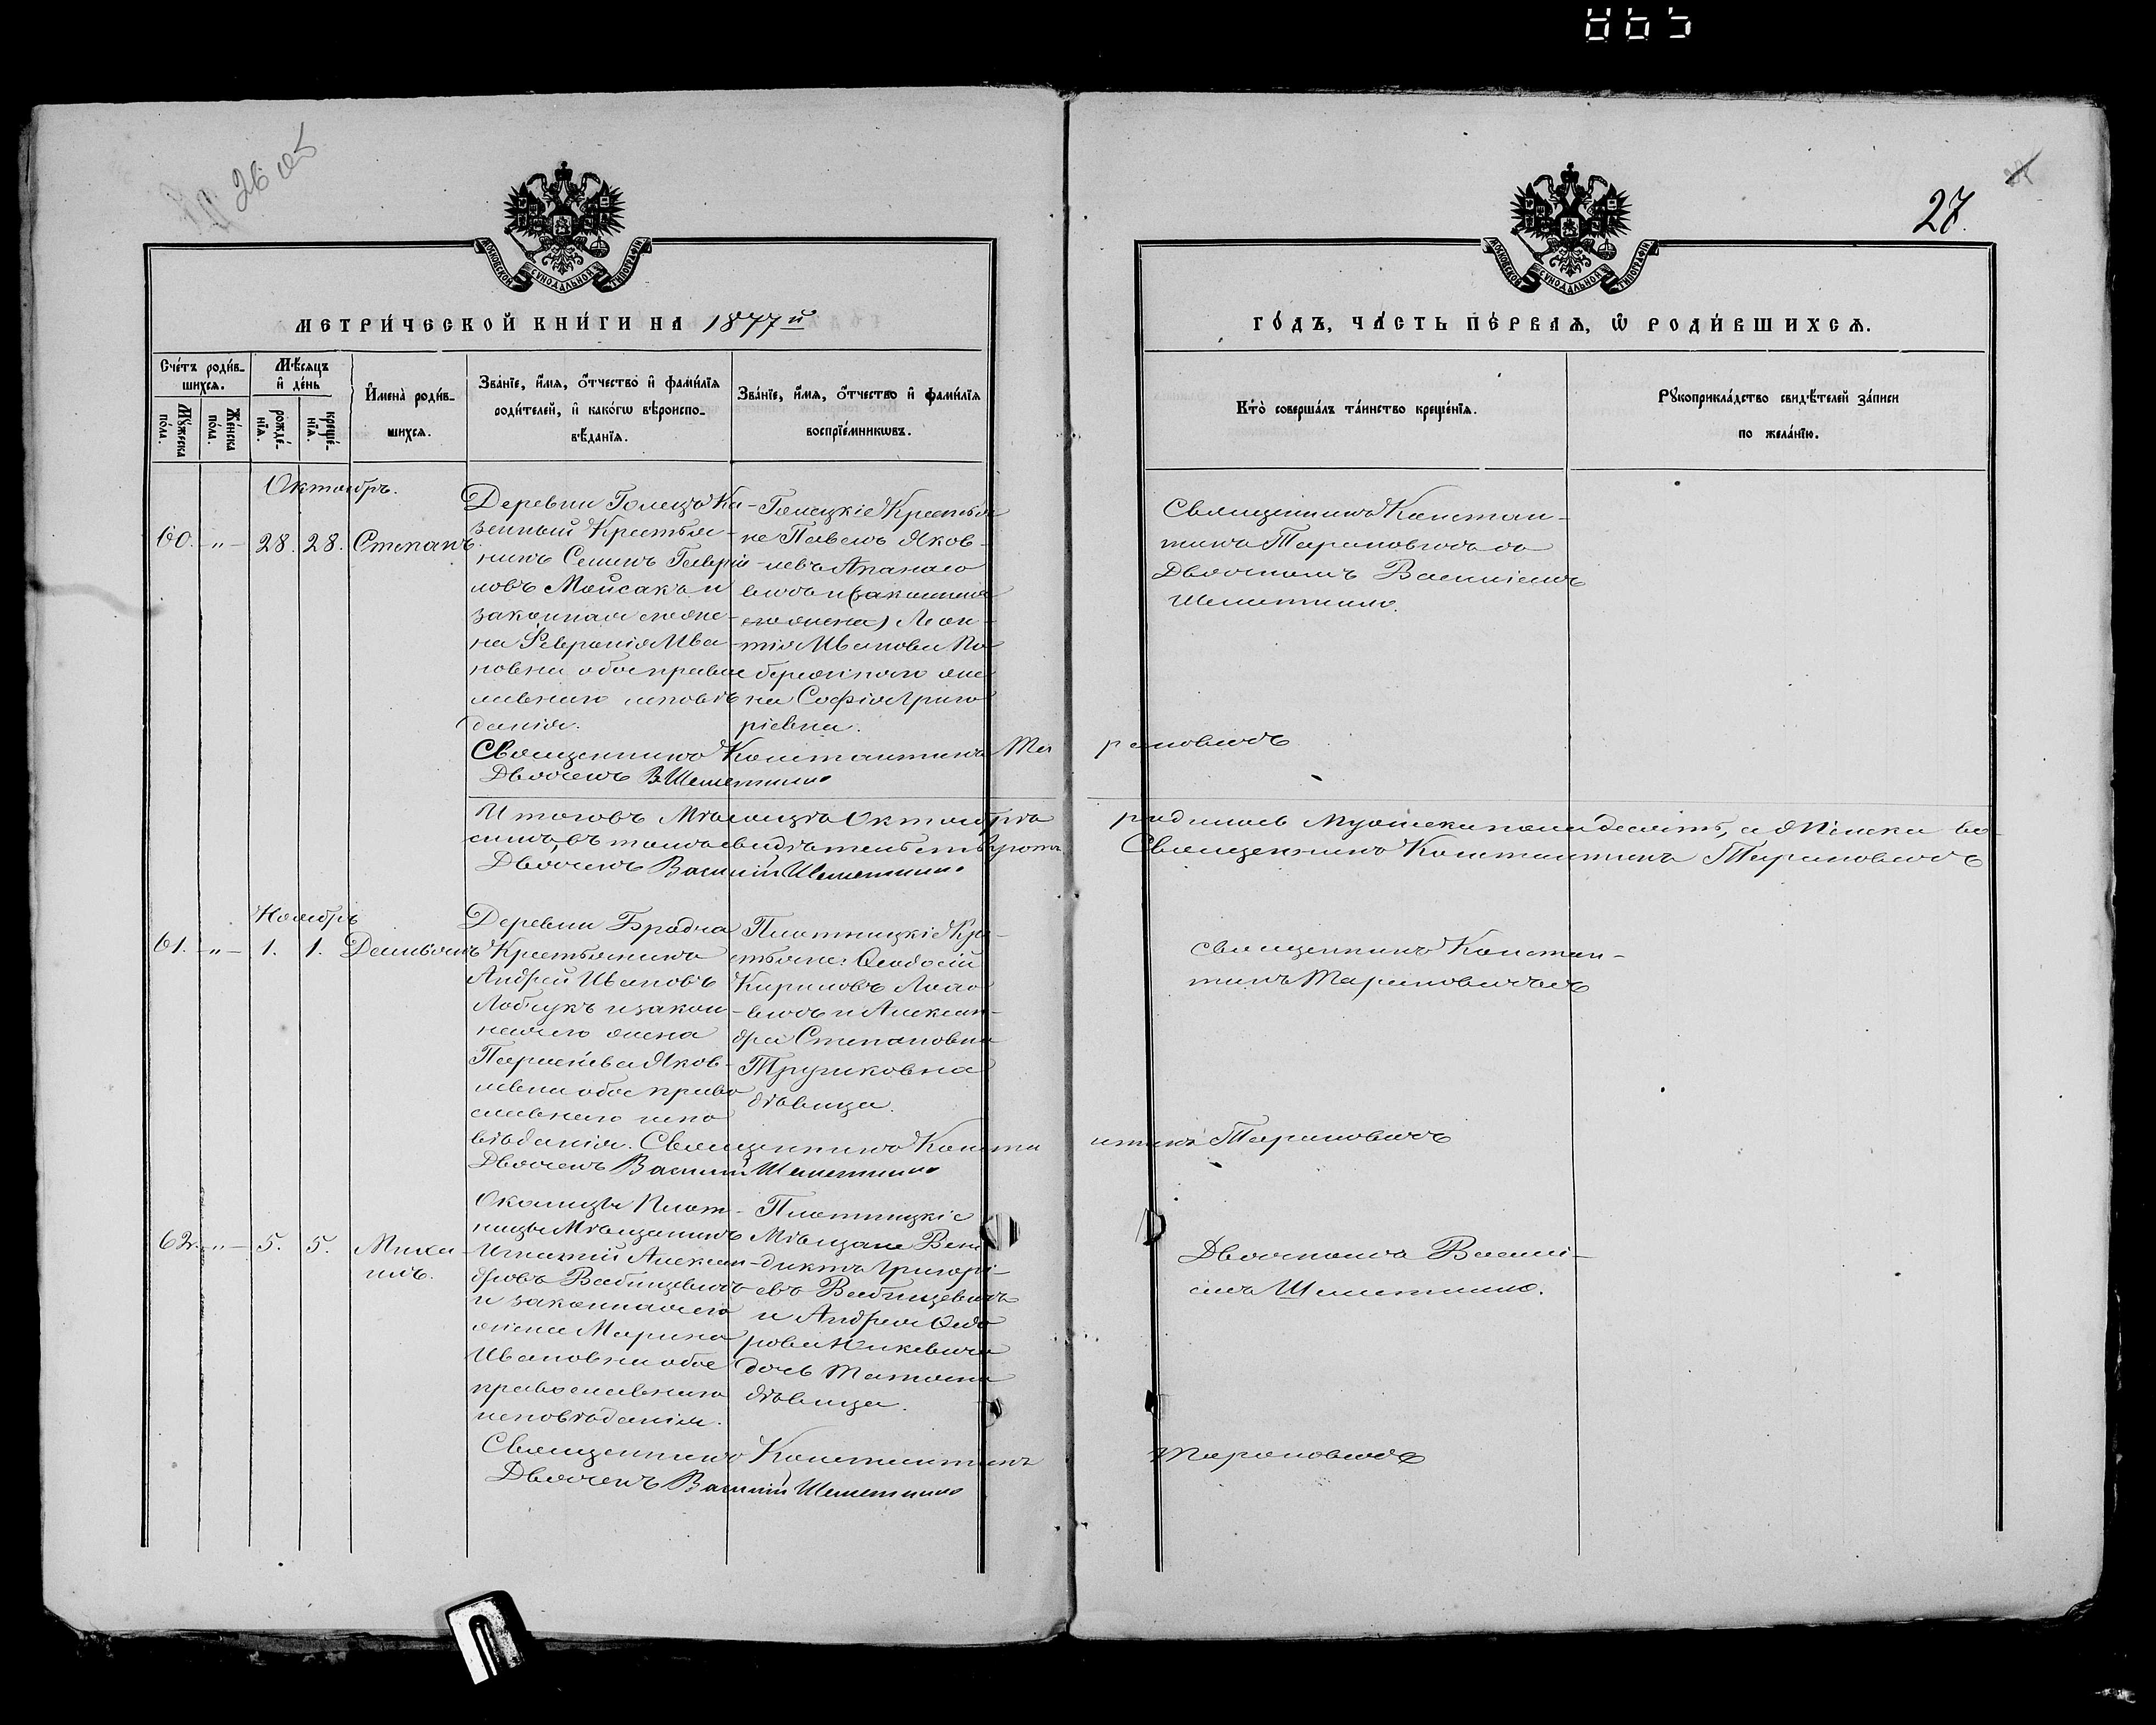 26 об
27.
МОСКОВСКОЙ СѴНОДАЛЬНОЙ ТИПОГРАФІИ
МОСКОВСКОЙ СѴНОДАЛЬНОЙ ТИПОГРАФІИ
МЕТРИ́ЧЕСКОЙ КНИ́ГИ НА 1877й
ГО́ДЪ, ЧА́СТЬ ПЕ́РВАѦ, Ѡ҆ РОДИ́ВШИХСѦ.
Сче́тъ роди́в-
шихсѧ.
Мꙋ́жеска
по́ла.
Же́нска
по́ла.
Мѣ́сѧцъ
и҆ де́нь
рожде́-
нїѧ.
креще́-
нїѧ.
И҆мена̀ роди́в-
шихсѧ.
Зва́нїе, и҆́мѧ, ѻ҆́тчество и҆ фамѝлїѧ
роди́телей, и҆ како́гѡ вѣ́роиспо-
вѣ́данїѧ.
Зва́нїе, и҆́мѧ, ѻ҆́тчество и҆ фамѝлїѧ
воспрїе́мникѡвъ.
Кто̀ соверша́лъ та́инство креще́нїѧ.
Рꙋкоприкла́дство свидѣ́телей за́писи
по жела́нїю.
Октябрь.
60. -"- 28. 28. Степанъ
Деревни Голецъ Ка-
зенный Крестья-
нинъ Семенъ Гаврі-
ловъ Мойсакъ и
законная его же-
на Февронія Ива-
новна обое право
славнаго исповѣ
данія.
Голецкіе Крестья
не Павелъ Яков-
левъ Апанасо
вичъ и (законная
его жена) Леон-
тія Иванова По
бережнаго же
на Софія Григо
ріевна.
Священникъ Констан-
тинъ Тарановичъ съ
Дьячкомъ Василіемъ
Шеметилло.
Священникъ Константинъ Та рановичъ
Дьячекъ В Шеметилло
Итого въ Мѣсяцѣ Октябрѣ родилось Мужеска пола десять, а Женска во
семь, въ томъ свидѣтельствуютъ Священникъ Константинъ Тарановичъ
Дьячекъ Василій Шеметилло
Ноябрь
61. -"- 1. 1. Демьянъ
Деревни Бродча
Крестьянинъ
Андрей Ивановъ
Лобчукъ и закон-
ная его жена
Параскева Яков-
левна обое право
славнаго испо
вѣданія.
Плотницкіе Кре-
стьяне: Ѳеодосій
Кириловъ
вичъ и Алексан-
дра Степановна
дѣвица.
Священникъ Констан-
тинъ Тарановичъ
Священникъ Конста нтинъ Тарановичъ
Дьячекъ Василій Шеметилло
62. -"- 5. 5. Миха
илъ.
Околицы Плот-
ницы Мѣщанинъ
Игнатій Алексан-
дровъ Вабищевичъ
и законная его
жена Марина
Ивановна обое
православнаго
исповѣданія.
Плотницкіе
Мѣщане Вене
диктъ Григорі-
евъ Вабищевичъ
и Андрея Ѳедо
рова Нкевича
дочь Татіана
дѣвица.
Дьячкомъ Васи-
ліемъ Шеметилло.
Священникъ Константинъ Тарановичъ
Дьячекъ Василій Шеметилло